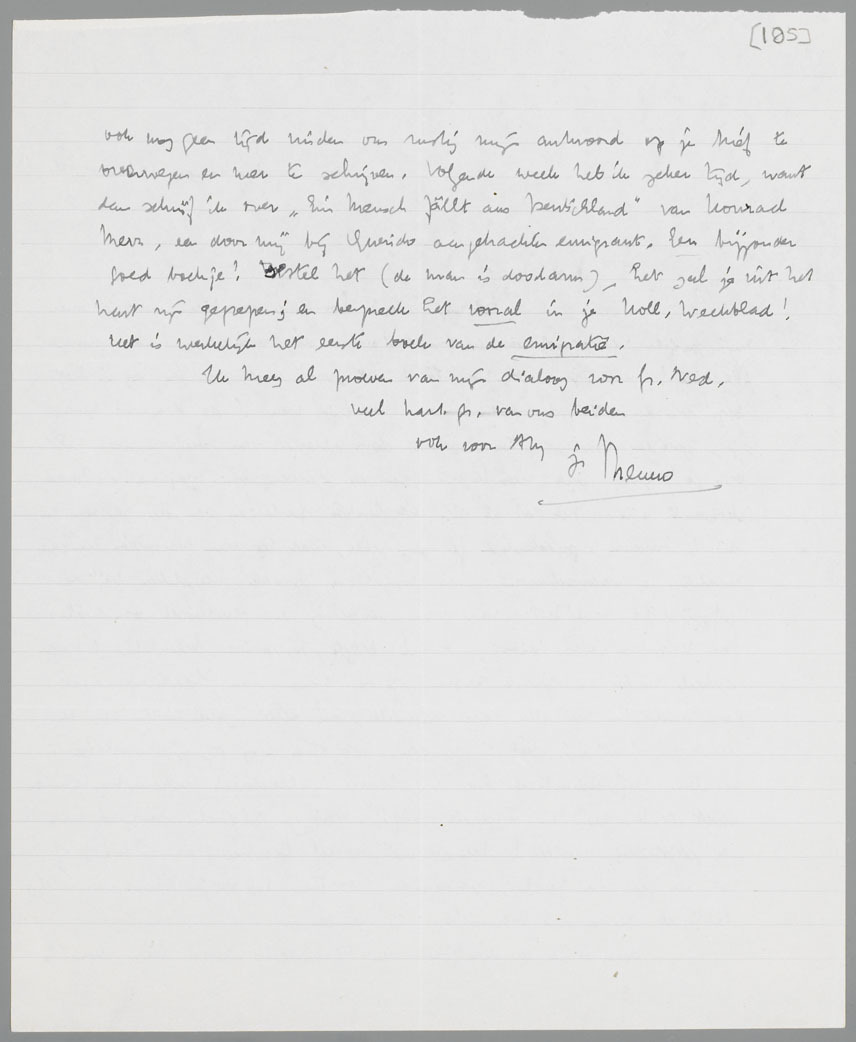 [185]
ook nog geen tijd vinden om rustig mijn antwoord op je brief te
overwegen en neer te schrijven. Volgende week heb ik zeker tijd, want
dan schrijf ik over „Ein Mensch fällt aus Deutschland" van Konrad
Merz, een door mij bij Querido aangebrachte emigrant. Een bijzonder
goed boekje! Bestel het (de man is doodarm), het zal je uit het
hart zijn gegrepen; en bespreek het vooral in je Holl. Weekblad!
Het is werkelijk het eerste boek van de emigratie.
Ik kreeg al proeven van mijn dialoog voor Gr. Ned.
veel hart. gr. van ons beiden
ook voor Atty je Menno